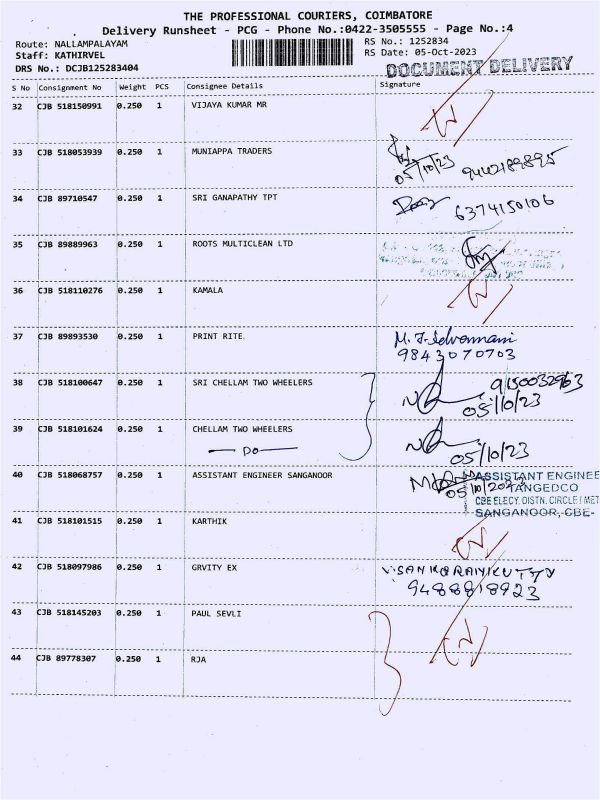 THE PROFESSIONAL COURIERS, COIMBATORE
Delivery Runsheet - PCG - Phone No.:0422-3505555 - Page No.:4
Route: NALLAMPALAYAM
RS No.: 1252834
Staff: KATHIRVEL
RS Date: 05-Oct-2023
DRS No.: DCJB125283404
DOCUMENT DELIVERY
S No Consignment No Weight PCS Consignee Details Signature
32 CJB 518150991 0.250 1 VIJAYA KUMAR MR
33 CJB 518053939 0.250 1 MUNIAPPA TRADERS
05/10/23 9442189895
34 CJB 89710547 0.250 1 SRI GANAPATHY TPT
6374150106
35 CJB 89889963 0.250 1 ROOTS MULTICLEAN LTD
36 CJB 518110276 0.250 1 KAMALA
37 CJB 89893530 0.250 1 PRINT RITE
9843070703
38 CJB 518100647 0.250 1 SRI CHELLAM TWO WHEELERS
9150032963
05/10/23
39 CJB 518101624 0.250 1 CHELLAM TWO WHEELERS
— DO —
05/10/23
40 CJB 518068757 0.250 1 ASSISTANT ENGINEER SANGANOOR
ASSISTANT ENGINEE
TANGEDCO
CBE ELECY. DISTN. CIRCLE / MET
SANGANOOR, CBE-
41 CJB 518101515 0.250 1 KARTHIK
42 CJB 518097986 0.250 1 GRVITY EX
V.SANKARANKUTTY
9488818923
43 CJB 518145203 0.250 1 PAUL SEVLI
44 CJB 89778307 0.250 1 RJA